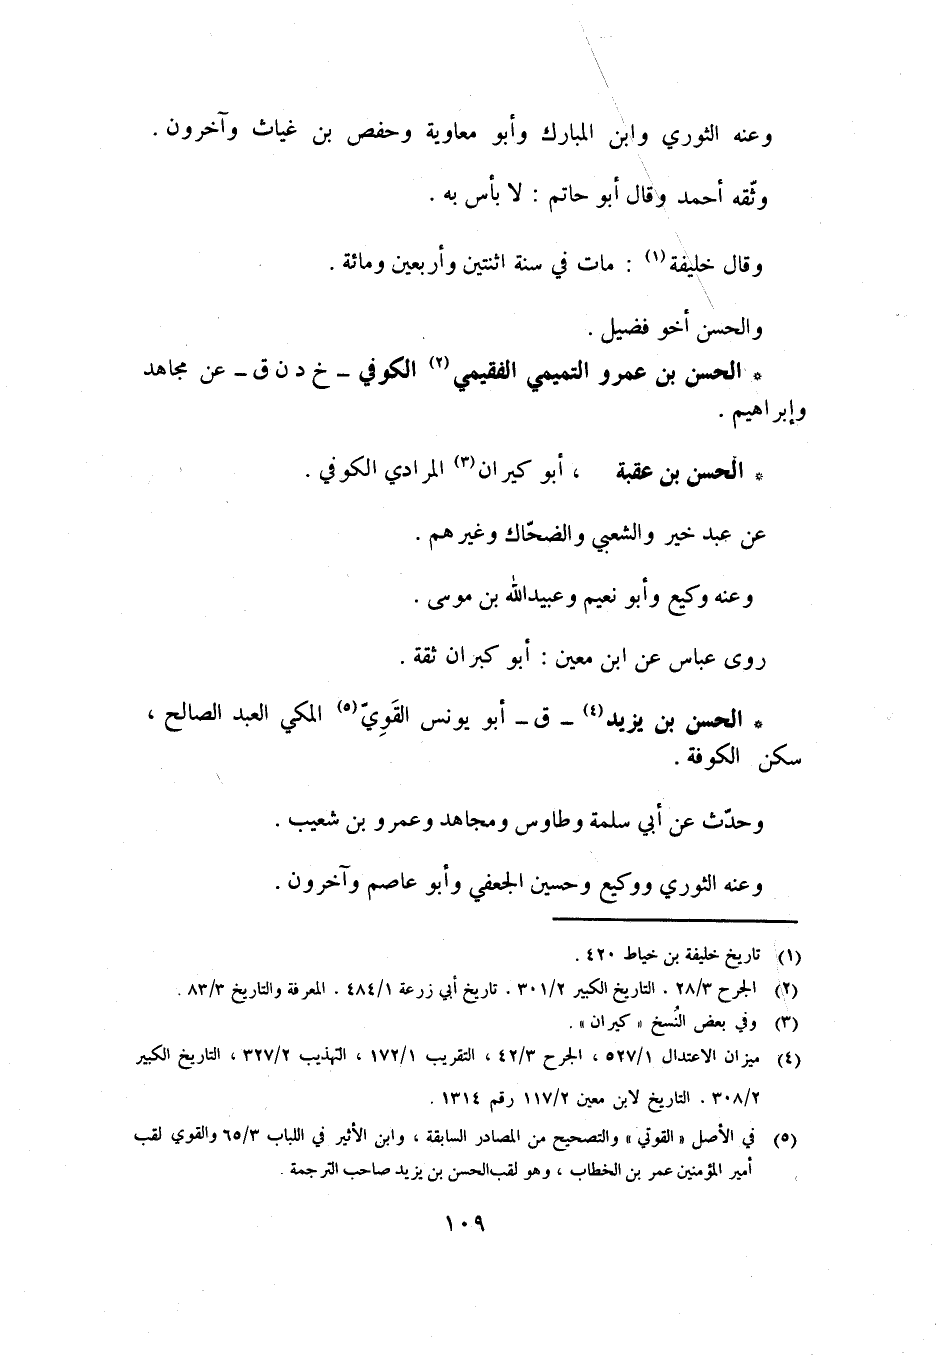 وعنه الثوري وابن المبارك وأبو معاوية وحفص بن غياث وآخرون .
وثّقه أحمد وقال أبو حاتم : لا بأس به .
وقال خليفة(١) : مات في سنة اثنتين وأربعين ومائة .
والحسن أخو فضيل .
* الحسن بن عمرو التميمي الفقيمي(٢) الكوفي ـ خ د ن ق ـ عن مجاهد
وإبراهيم .
* الحسن بن عقبة ، أبو كيران(٣) المرادي الكوفي .
عن عبد خير والشعبي والضحّاك وغيرهم .
وعنه وكيع وأبو نعيم وعبيدالله بن موسى .
روى عباس عن ابن معين : أبو كبران ثقة .
* الحسن بن يزيد(٤) ـ ق ـ أبو يونس القَوِيّ(٥) المكي العبد الصالح ،
سكن الكوفة .
وحدّث عن أبي سلمة وطاوس ومجاهد وعمرو بن شعيب .
وعنه الثوري ووكيع وحسين الجعفي وأبو عاصم وآخرون .
(١) تاريخ خليفة بن خياط ٤٢٠ .
(٢) الجرح ٢٨/٣ . التاريخ الكبير ٣٠١/٢ . تاريخ أبي زرعة ٤٨٤/١ . المعرفة والتاريخ ٨٣/٣ .
(٣) وفي بعض النُسخ « كيران » .
(٤) ميزان الاعتدال ٥٢٧/١ ، الجرح ٤٢/٣ ، التقريب ١٧٢/١ ، التهذيب ٣٢٧/٢ ، التاريخ الكبير
٣٠٨/٢ . التاريخ لابن معين ١١٧/٢ رقم ١٣١٤ .
(٥) في الأصل « القوتي » والتصحيح من المصادر السابقة ، وابن الأثير في اللباب ٦٥/٣ والقوي لقب
أمير المؤمنين عمر بن الخطاب ، وهو لقب الحسن بن يزيد صاحب الترجمة .
١٠٩